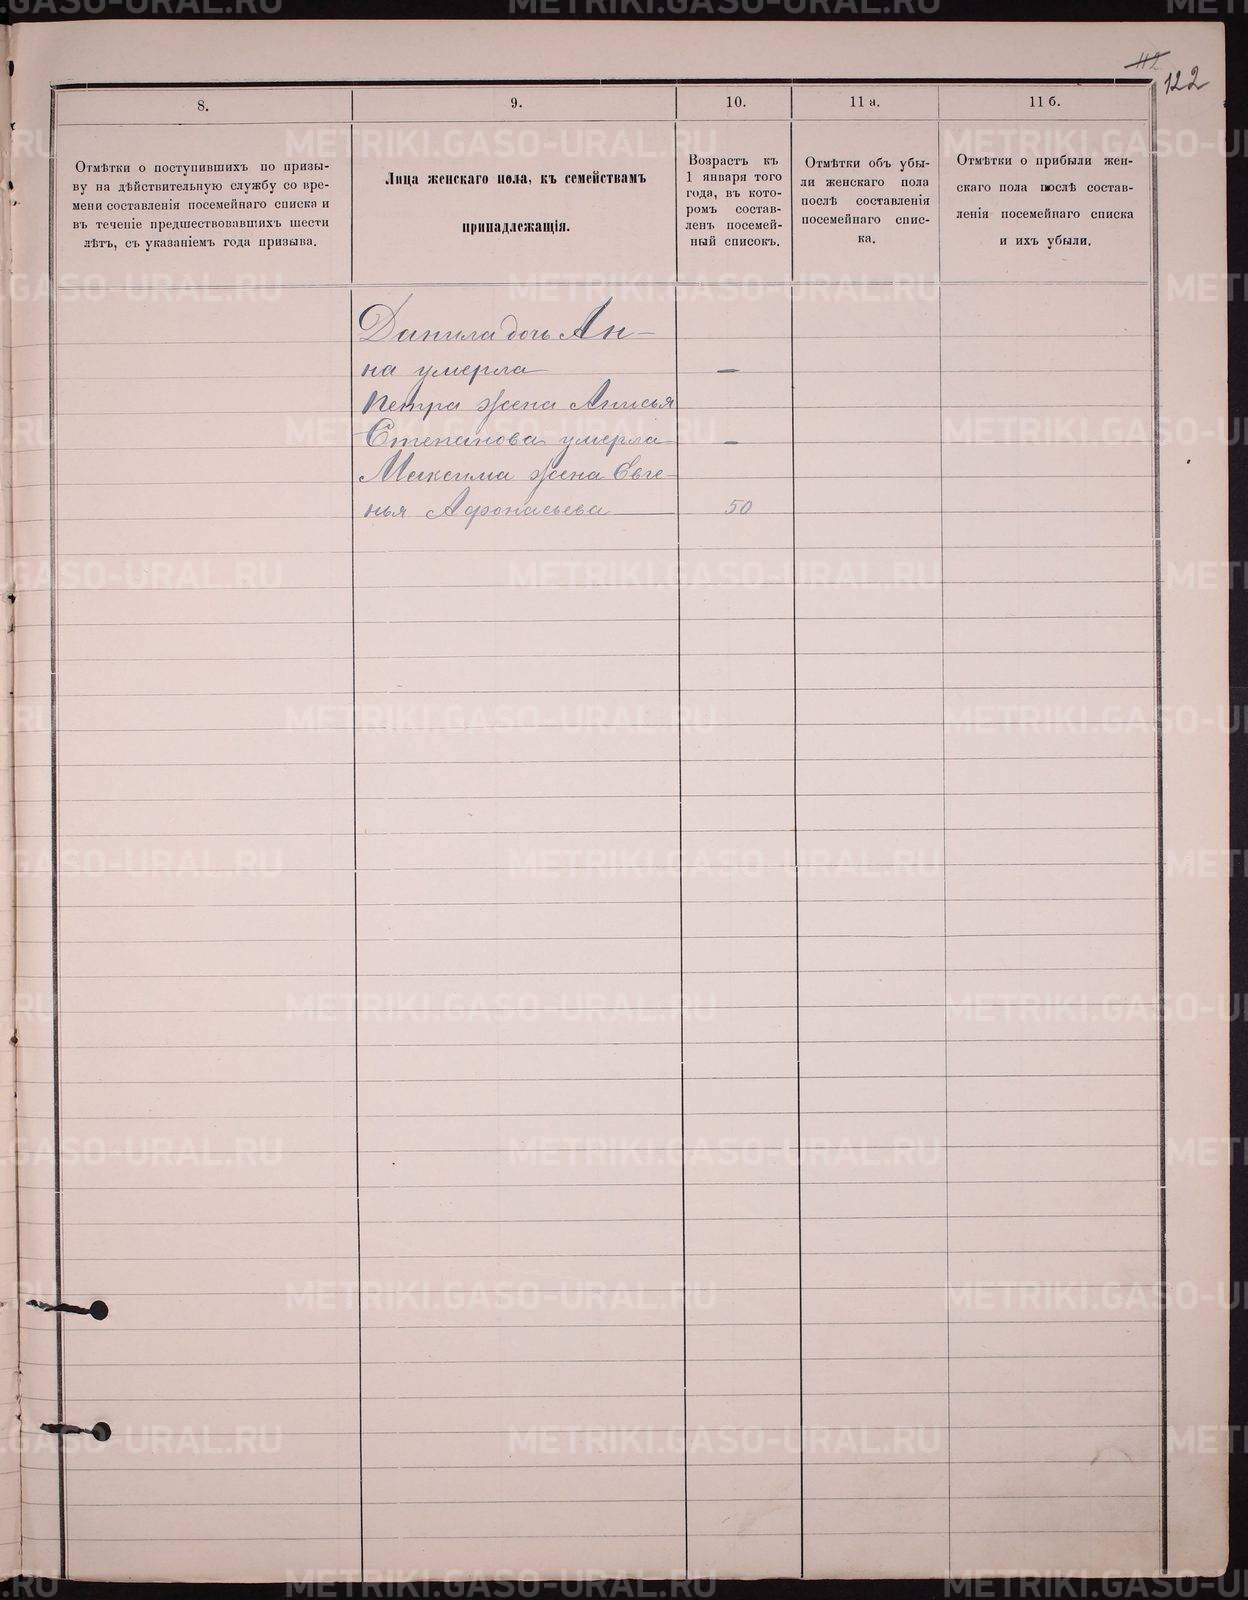 122
8.
9.
10.
11 а.
11 б.
Отмѣтки о поступившихъ по призы-
ву на дѣйствительную службу со вре-
мени составленія посемейнаго списка и
въ теченіе предшествовавшихъ шести
лѣтъ, съ указаніемъ года призыва.
Лица женскаго пола, къ семействамъ
принадлежащія.
Возрастъ къ
1 января того
года, въ кото-
ромъ состав-
ленъ посемей-
ный списокъ.
Отмѣтки объ убы-
ли женскаго пола
послѣ составленія
посемейнаго спис-
ка.
Отмѣтки о прибыли жен-
скаго пола послѣ состав-
ленія посемейнаго списка
и ихъ убыли.
Данила дочь Ан-
на умерла —
Петра жена Анисья
Степанова умерла —
Максима жена Евге-
нья Афонасьева 50
METRIKI.GASO-URAL.RU